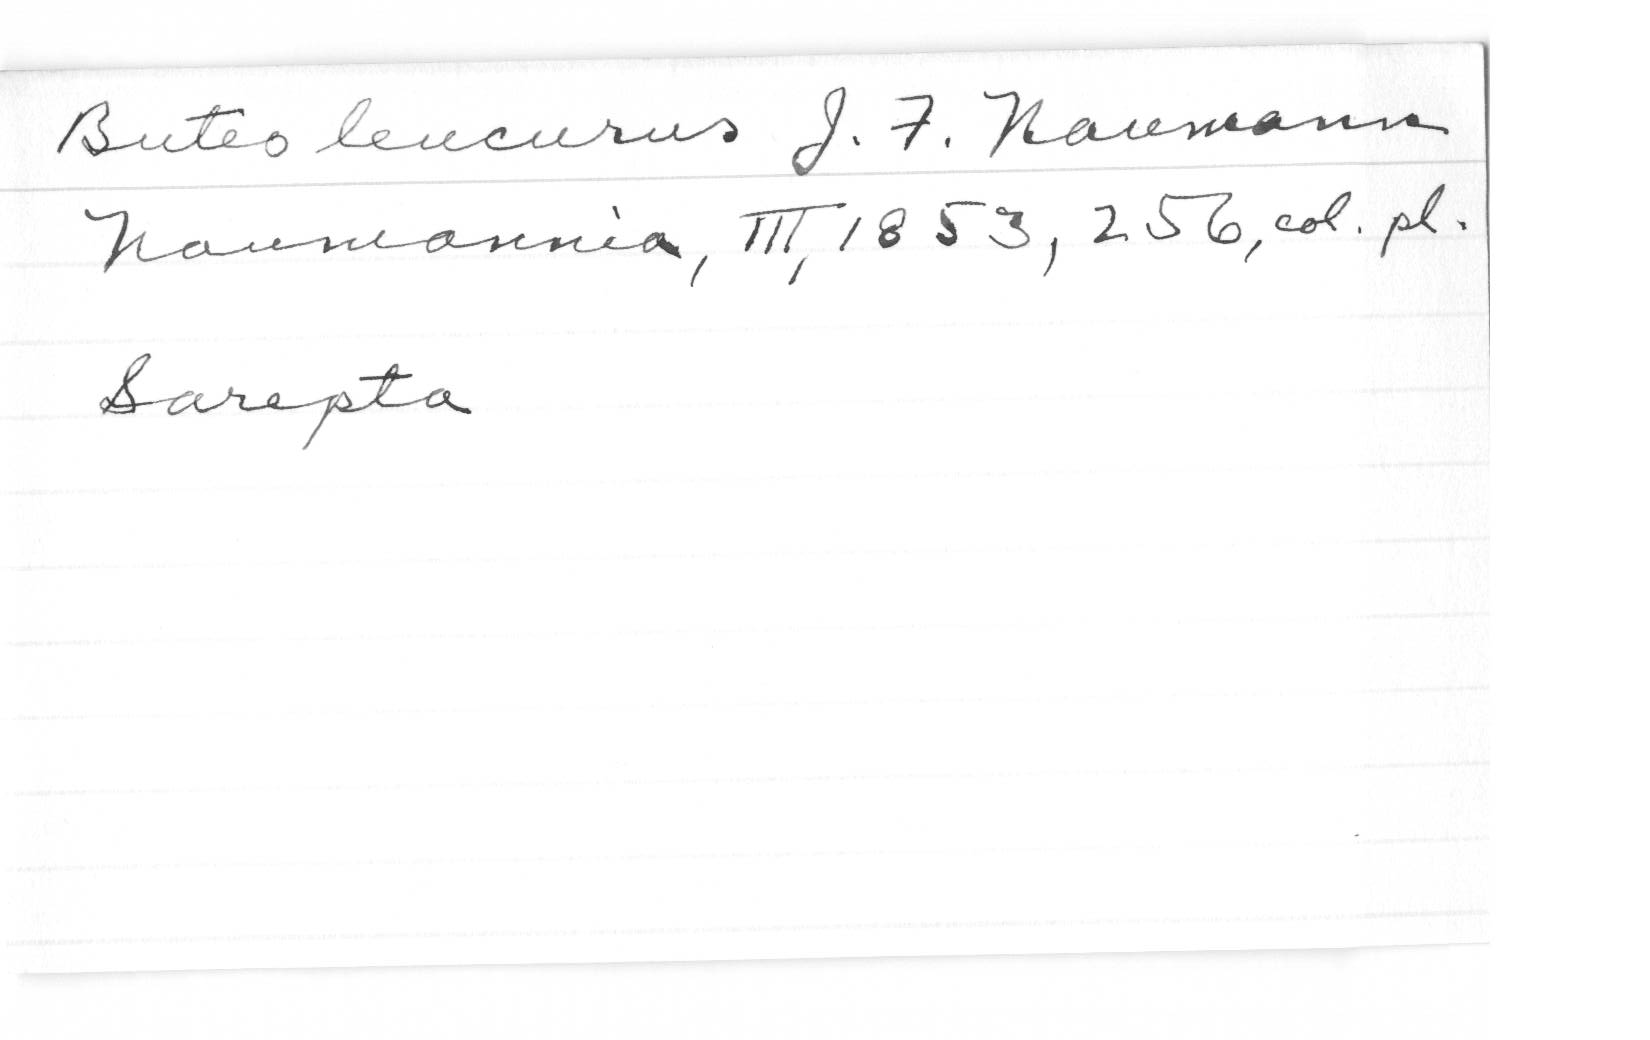 Buteo leucurus J. F. Naumann
Naumannia, III, 1853, 256, col. pl.
Sarepta